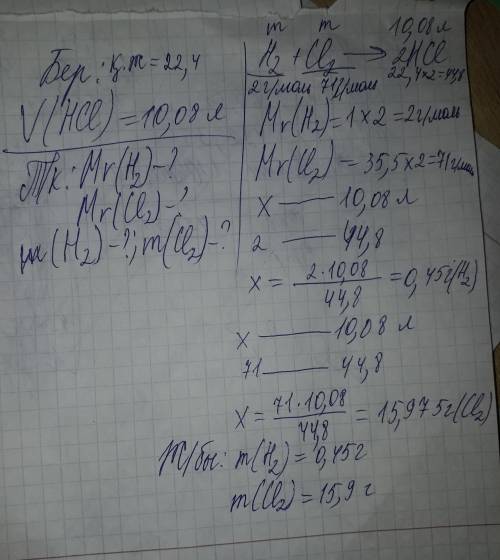 Бер: қ.т = 22,4
V(HCl) = 10,08 л
Тк: Mr(H₂)-?
Mr(Cl₂)-?
m(H₂)-?; m(Cl₂)-?
m m 10,08 л
H₂ + Cl₂ → 2HCl
2г/моль 71г/моль 22,4×2=44,8
Mr(H₂) = 1×2 = 2г/моль
Mr(Cl₂) = 35,5×2 = 71г/моль
x — 10,08 л
2 — 44,8
x = 2·10,08 / 44,8 = 0,45г(H₂)
x — 10,08 л
71 — 44,8
x = 71·10,08 / 44,8 = 15,975г(Cl₂)
Ж/бы: m(H₂) = 0,45г
m(Cl₂) = 15,9 г